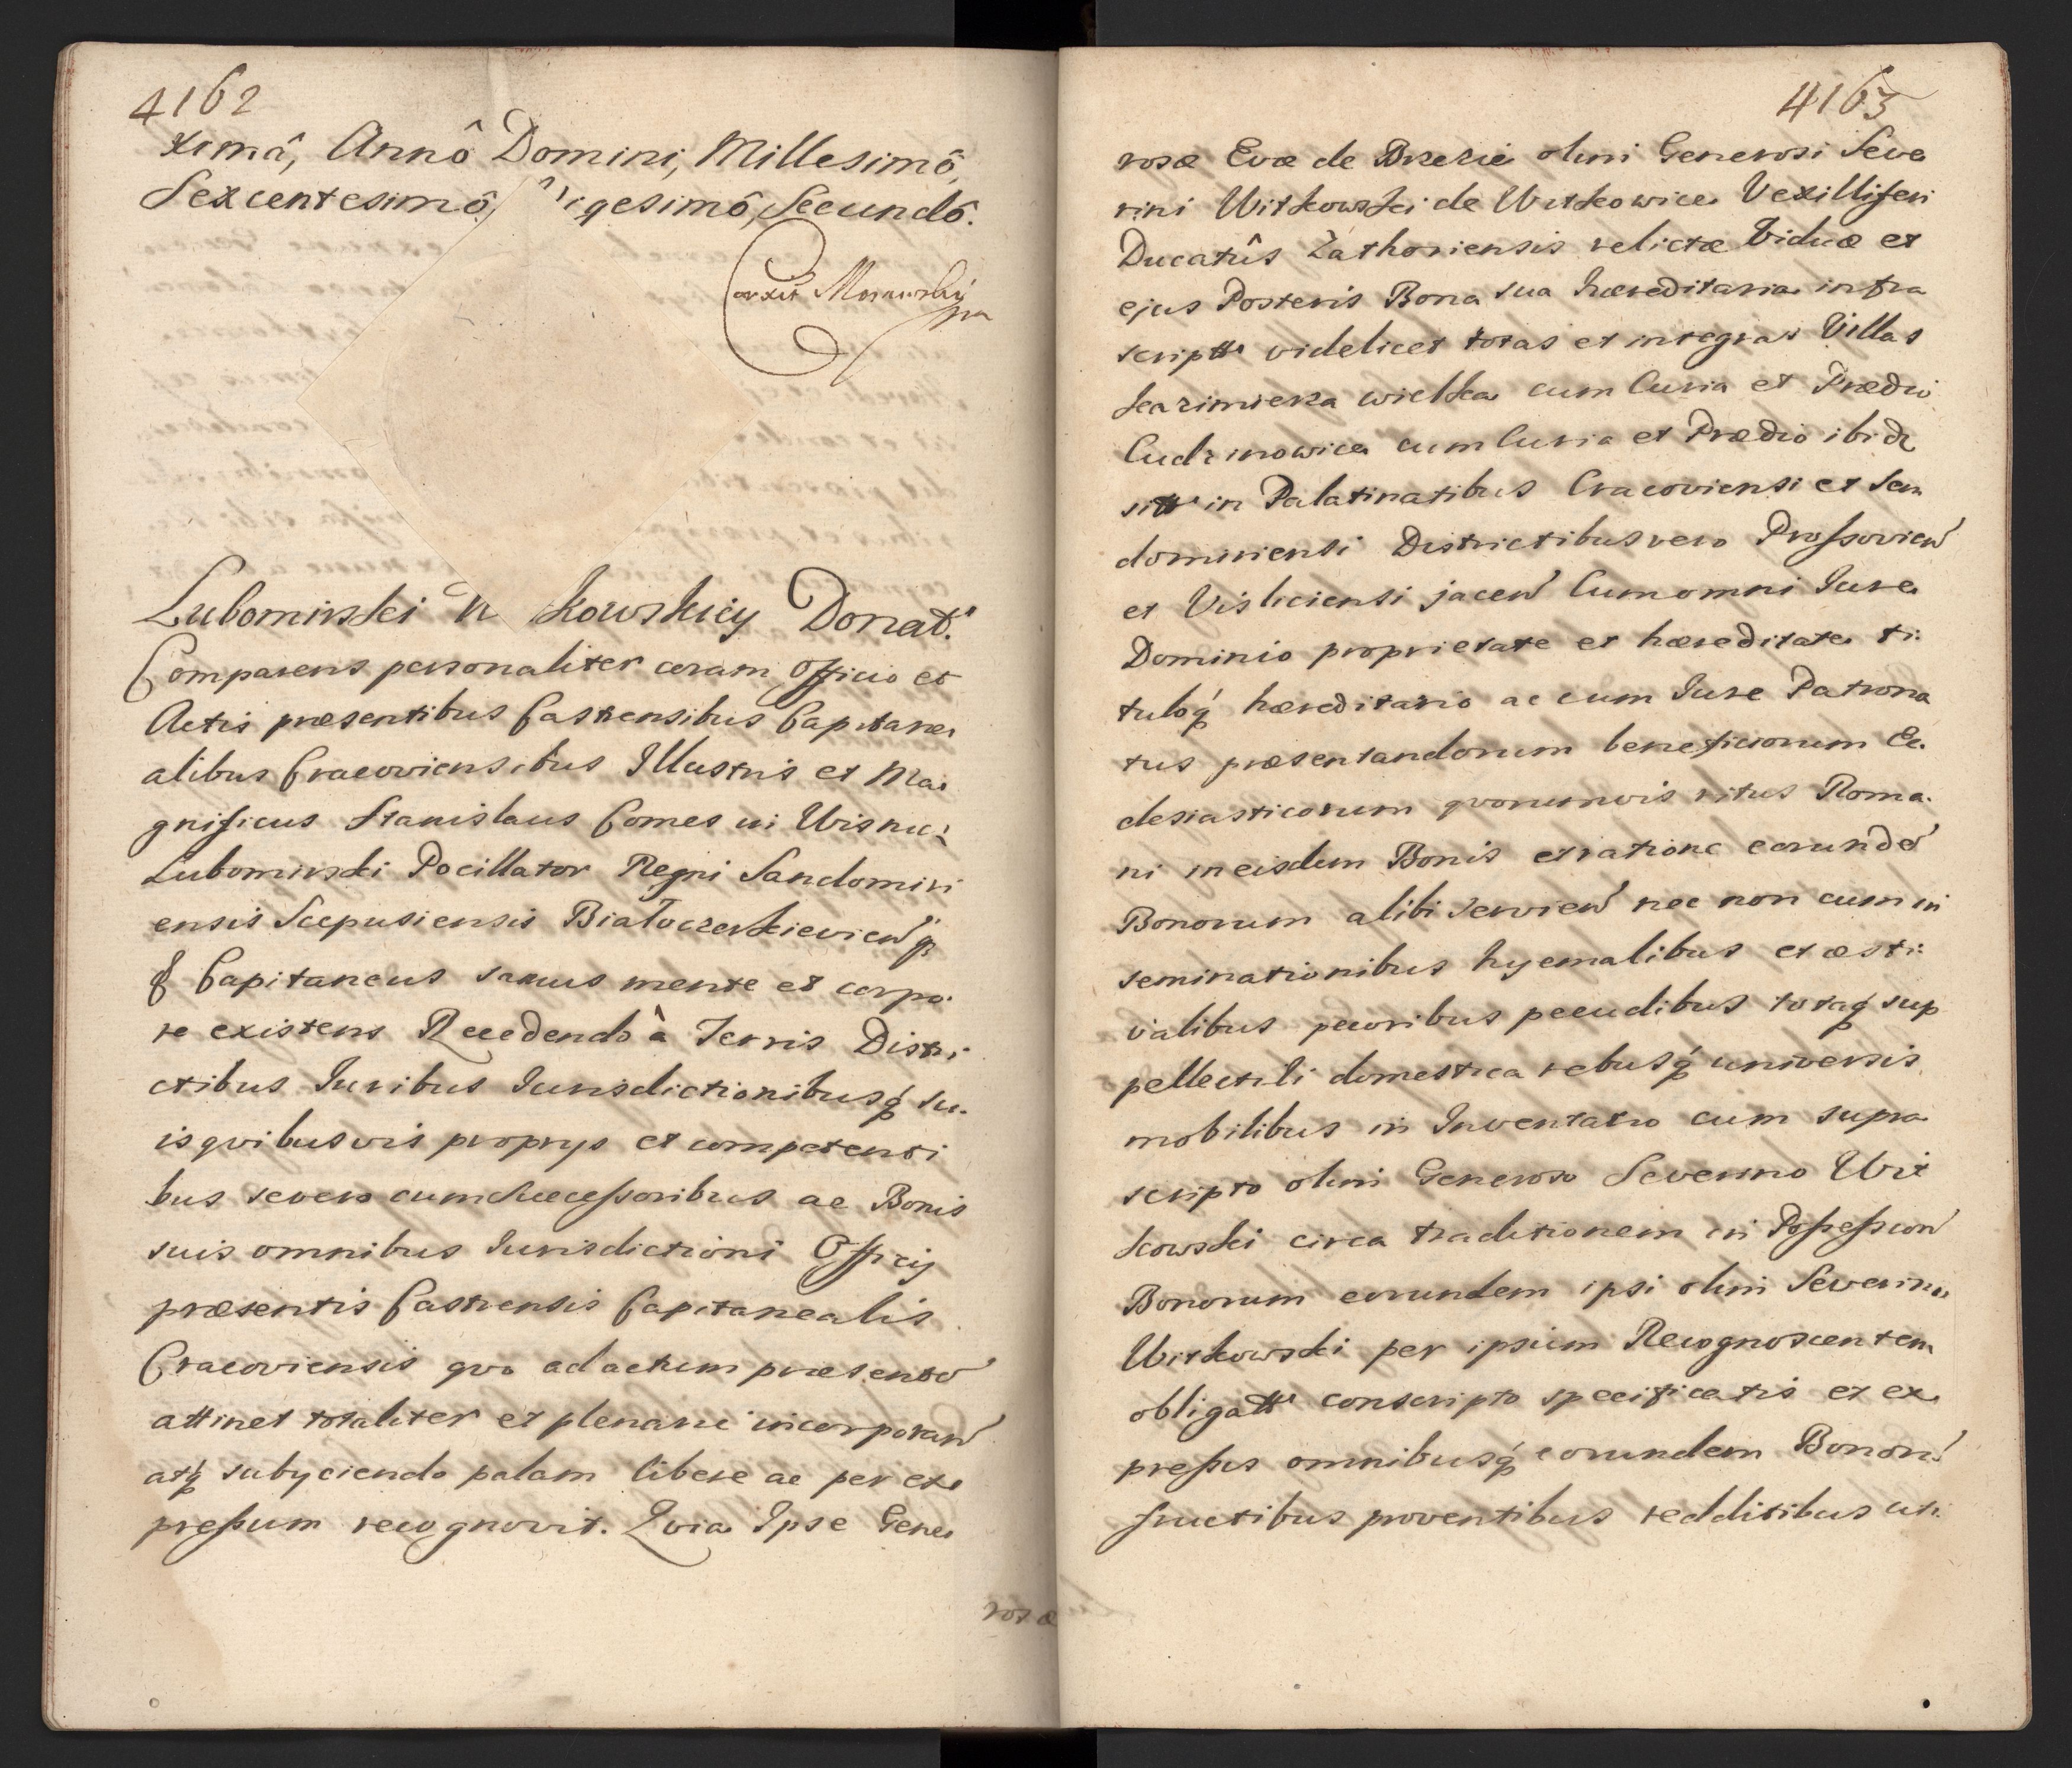 4162
ximâ, Annô Domini, Millesimô,
Sexcentesimô, igesimô, Secundô.
Correxit Morawsky
mp
Lubomirski kowskiey Donat.
Comparens personaliter coram Officio et
Actis præsentibus Castrensibus Capitane
alibus Cracoviensibus Illustris et Ma
gnificus Stanislaus Comes in Wisnic:
Lubomirski Pocillator Regni Sandomiri
ensis Scepusiensis Białocerkievien
Capitaneus sanus mente et corpo.
re existens Recedendo à Terris Distri
ctibus Juribus Jurisdictionibusq su.
is qvibusvis proprys et competenti
bus se vero cum Successoribus ac Bonis
suis omnibus Jurisdictioni Officij
præsentis Castrensis Capitanealis
Cracoviensis qvo ad actum præsente
attinet totaliter et plenarie incorporan
atq subyciendo palam libere ac per ex
pressum recognovit. Qvia Ipse Gene
rosæ
4163
rosæ Evæ de Brzezie olim Generosi Seve
rini Witkowski de Witkowice Vexilliferi
Ducatûs Zathoriensis relictæ Viduæ et
ejus Posteris Bona sua hæreditaria infra
script videlicet totas et integras Villas
Kazimierza wielka cum Curia et Prædio
Cudzinowice cum Curia et Prædio ibid
sitt in Palatinatibus Cracoviensi et San
domiriensi Districtibus vero Prossovien
et Visliciensi jacen Cum omni Jure
Dominio proprietate et hæreditate ti:
tuloq hæreditario ac cum Jure Patrona
tus præsentandorum beneficiorum Ec.
clesiasticorum qvorumvis ritus Roma.
ni in eisdem Bonis et ratione eorunde
Bonorum alibi servien nec non cum in
seminationibus hyemalibus et æsti:
valibus pecoribus pecudibus totaq sup
pellectili domestica rebusq universis
mobilibus in Inventario cum supra
scripto olim Generoso Severino Wit
kowski circa traditionem in Possession
Bonorum eorundem ipsi olim Severino
Witkowski per ipsum Recognoscentem
obligatt conscripto specificatis et ex
pressis omnibusq eorundem Bonor
fructibus proventibus redditibus uti.